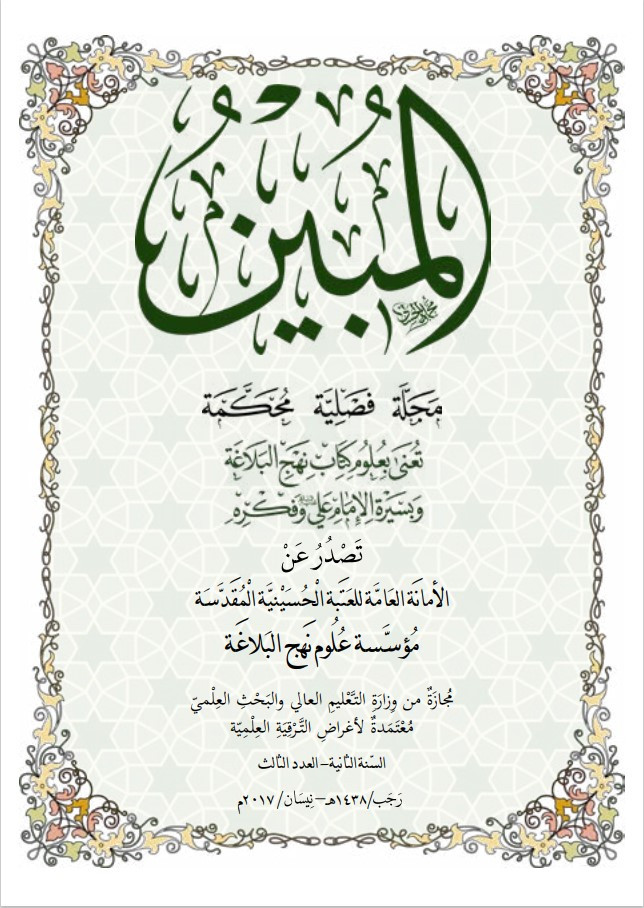 المُبِين
مَجَلَّة فَصْلِيَّة مُحَكَّمَة
تُعْنَى بِعُلُومِ كِتَابِ نَهْجِ البَلَاغَةِ
وَبِسِيرَةِ الإِمَامِ عَلِي وَفِكْرِهِ
تَصْدُرُ عَنْ
الأمانَة العَامَّة للعَتَبَة الْحُسَيْنِيَّة الْمُقَدَّسَة
مُؤسَّسة عُلُوم نَهج البَلاغَة
مُجازَةٌ من وِزارَةِ التَّعْليمِ العالي والبَحْثِ العِلْميّ
مُعْتَمَدةٌ لأغراضِ التَّرْقِيَةِ العِلْمِيّة
السّنة الثانية-العدد الثالث
رَجَب/١٤٣٨هـ–نِيسَان/٢٠١٧م